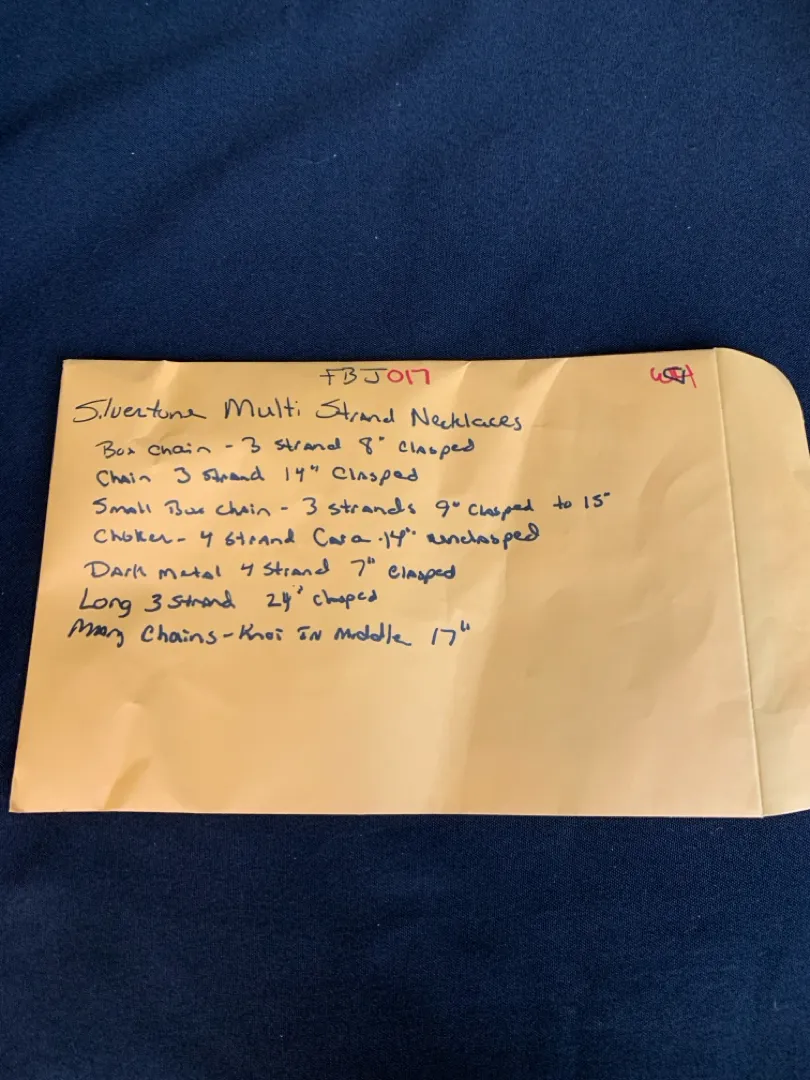 FBJ017
Silvertone Multi Strand Necklaces
Box Chain - 3 Strand 8" Clasped
Chain 3 Strand 14" Clasped
Small Box Chain - 3 strands 9" Clasped to 15"
Choker - 4 Strand 14" unclasped
Dark Metal 4 Strand 7" Clasped
Long 3 Strand 24" Clasped
Many Chains - Knot IN Middle 17"